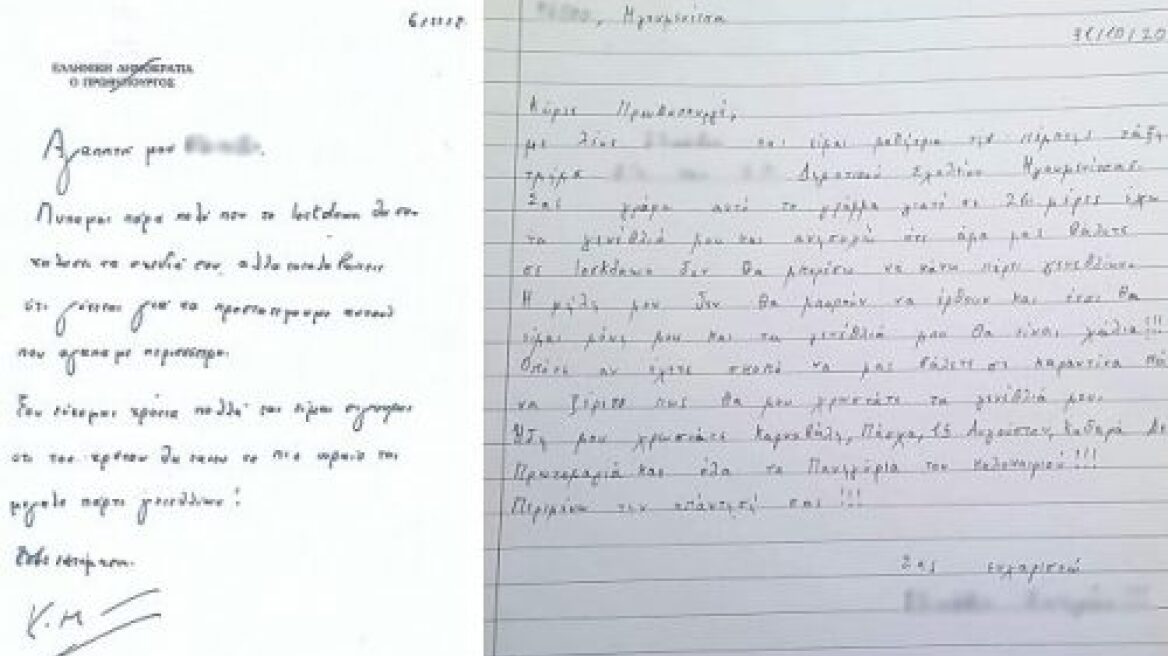 ΕΛΛΗΝΙΚΗ ΔΗΜΟΚΡΑΤΙΑ
Ο ΠΡΩΘΥΠΟΥΡΓΟΣ
Αγαπητή μου
Λυπαμαι πάρα πολύ που το lockdown θα σου
χαλάσει τα σχέδιά σου, αλλά καταλαβαίνεις
ότι γίνεται για να προστατέψουμε αυτούς
που αγαπάμε περισσότερο.
Σου εύχομαι χρόνια πολλά και είμαι σίγουρος
ότι του χρόνου θα κάνεις το πιο ωραίο και
μεγάλο πάρτι γενεθλίων!
Με εκτίμηση.
Κ.Μ
, Ηγουμενίτσα
31/10/20
Κύριε Πρωθυπουργέ,
με λένε και είμαι μαθήτρια της πέμπτης τάξης
τμήμα Δημοτικού Σχολείου Ηγουμενίτσας.
Σας γράφω αυτό το γράμμα γιατί σε 26 μέρες έχω
τα γενέθλιά μου και ανησυχώ ότι άμα μας βάλετε
σε lockdown δεν θα μπορέσω να κάνω πάρτι γενεθλίων.
Η φίλη μου δεν θα μπορούν να έρθουν και έτσι θα
είμαι μόνη μου και τα γενέθλιά μου θα είναι χάλια!!!
Οπότε αν έχετε σκοπό να μας βάλετε σε καραντίνα
να ξέρετε πως θα μου χρωστάτε τα γενέθλιά μου.
Ήδη μου χρωστάτε Καρναβάλι, Πάσχα, 15 Αυγούστου, Καθαρά Δε
Πρωτομαγιά και όλα τα Πανηγύρια του καλοκαιριού!!!
Περιμένω την απάντησή σας!!!
Σας ευχαριστώ